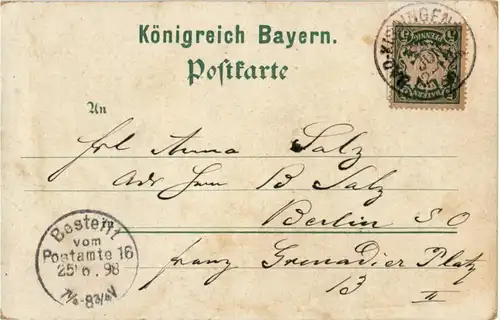 Königreich Bayern.
Postkarte
BAD-KISSINGEN
An
Frl Anna Salz
Adr Herrn B Salz
Berlin S O
Franz Grenadier Platz
13 II
Bestellt
vom
Postamte 16
25 6. 98